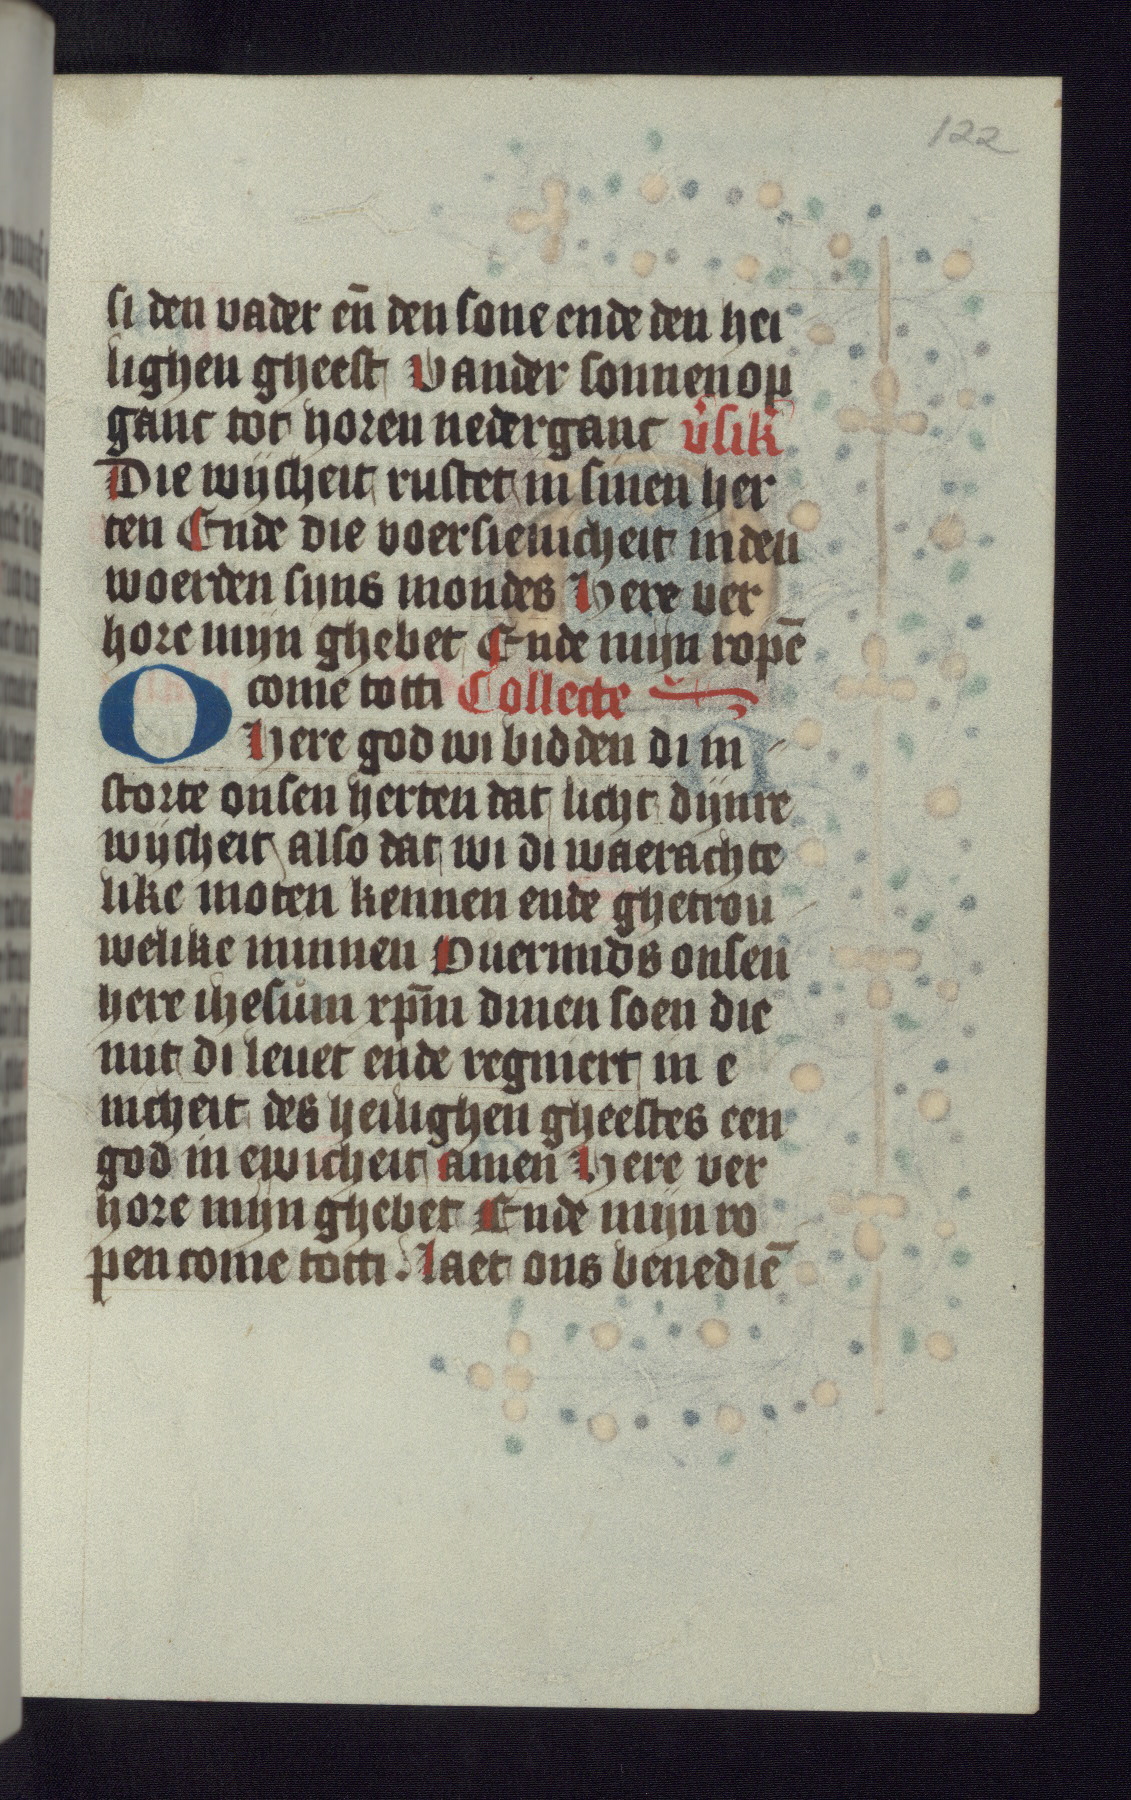 122
si den vader en̄ den sone ende den hei
lighen gheest Vander sonnen op
ganc tot horen nederganc v̓sik̓
Die wijsheit rustet in sinen her
ten Ende die voersienicheit in den
woerden sijns mondes Here ver
hore mijn ghebet Ende mijn ropē
come totti Collecte
O Here god wi bidden di in
storte onsen herten dat licht dijnre
wijsheit also dat wi di waerachte
like moten kennen ende ghetrou
welike minnen Ouermids onsen
here ihesum xp̄m dinen soen die
mit di leuet ende regniert in e
nicheit des heilighen gheestes een
god in ewicheit amen Here ver
hore mijn ghebet Ende mijn ro
pen come totti . laet ons benediē